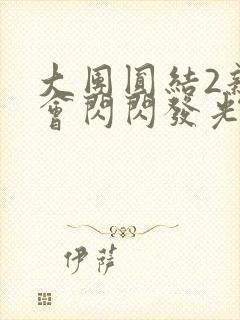 大團圓結2
會閃閃發光
伊薩